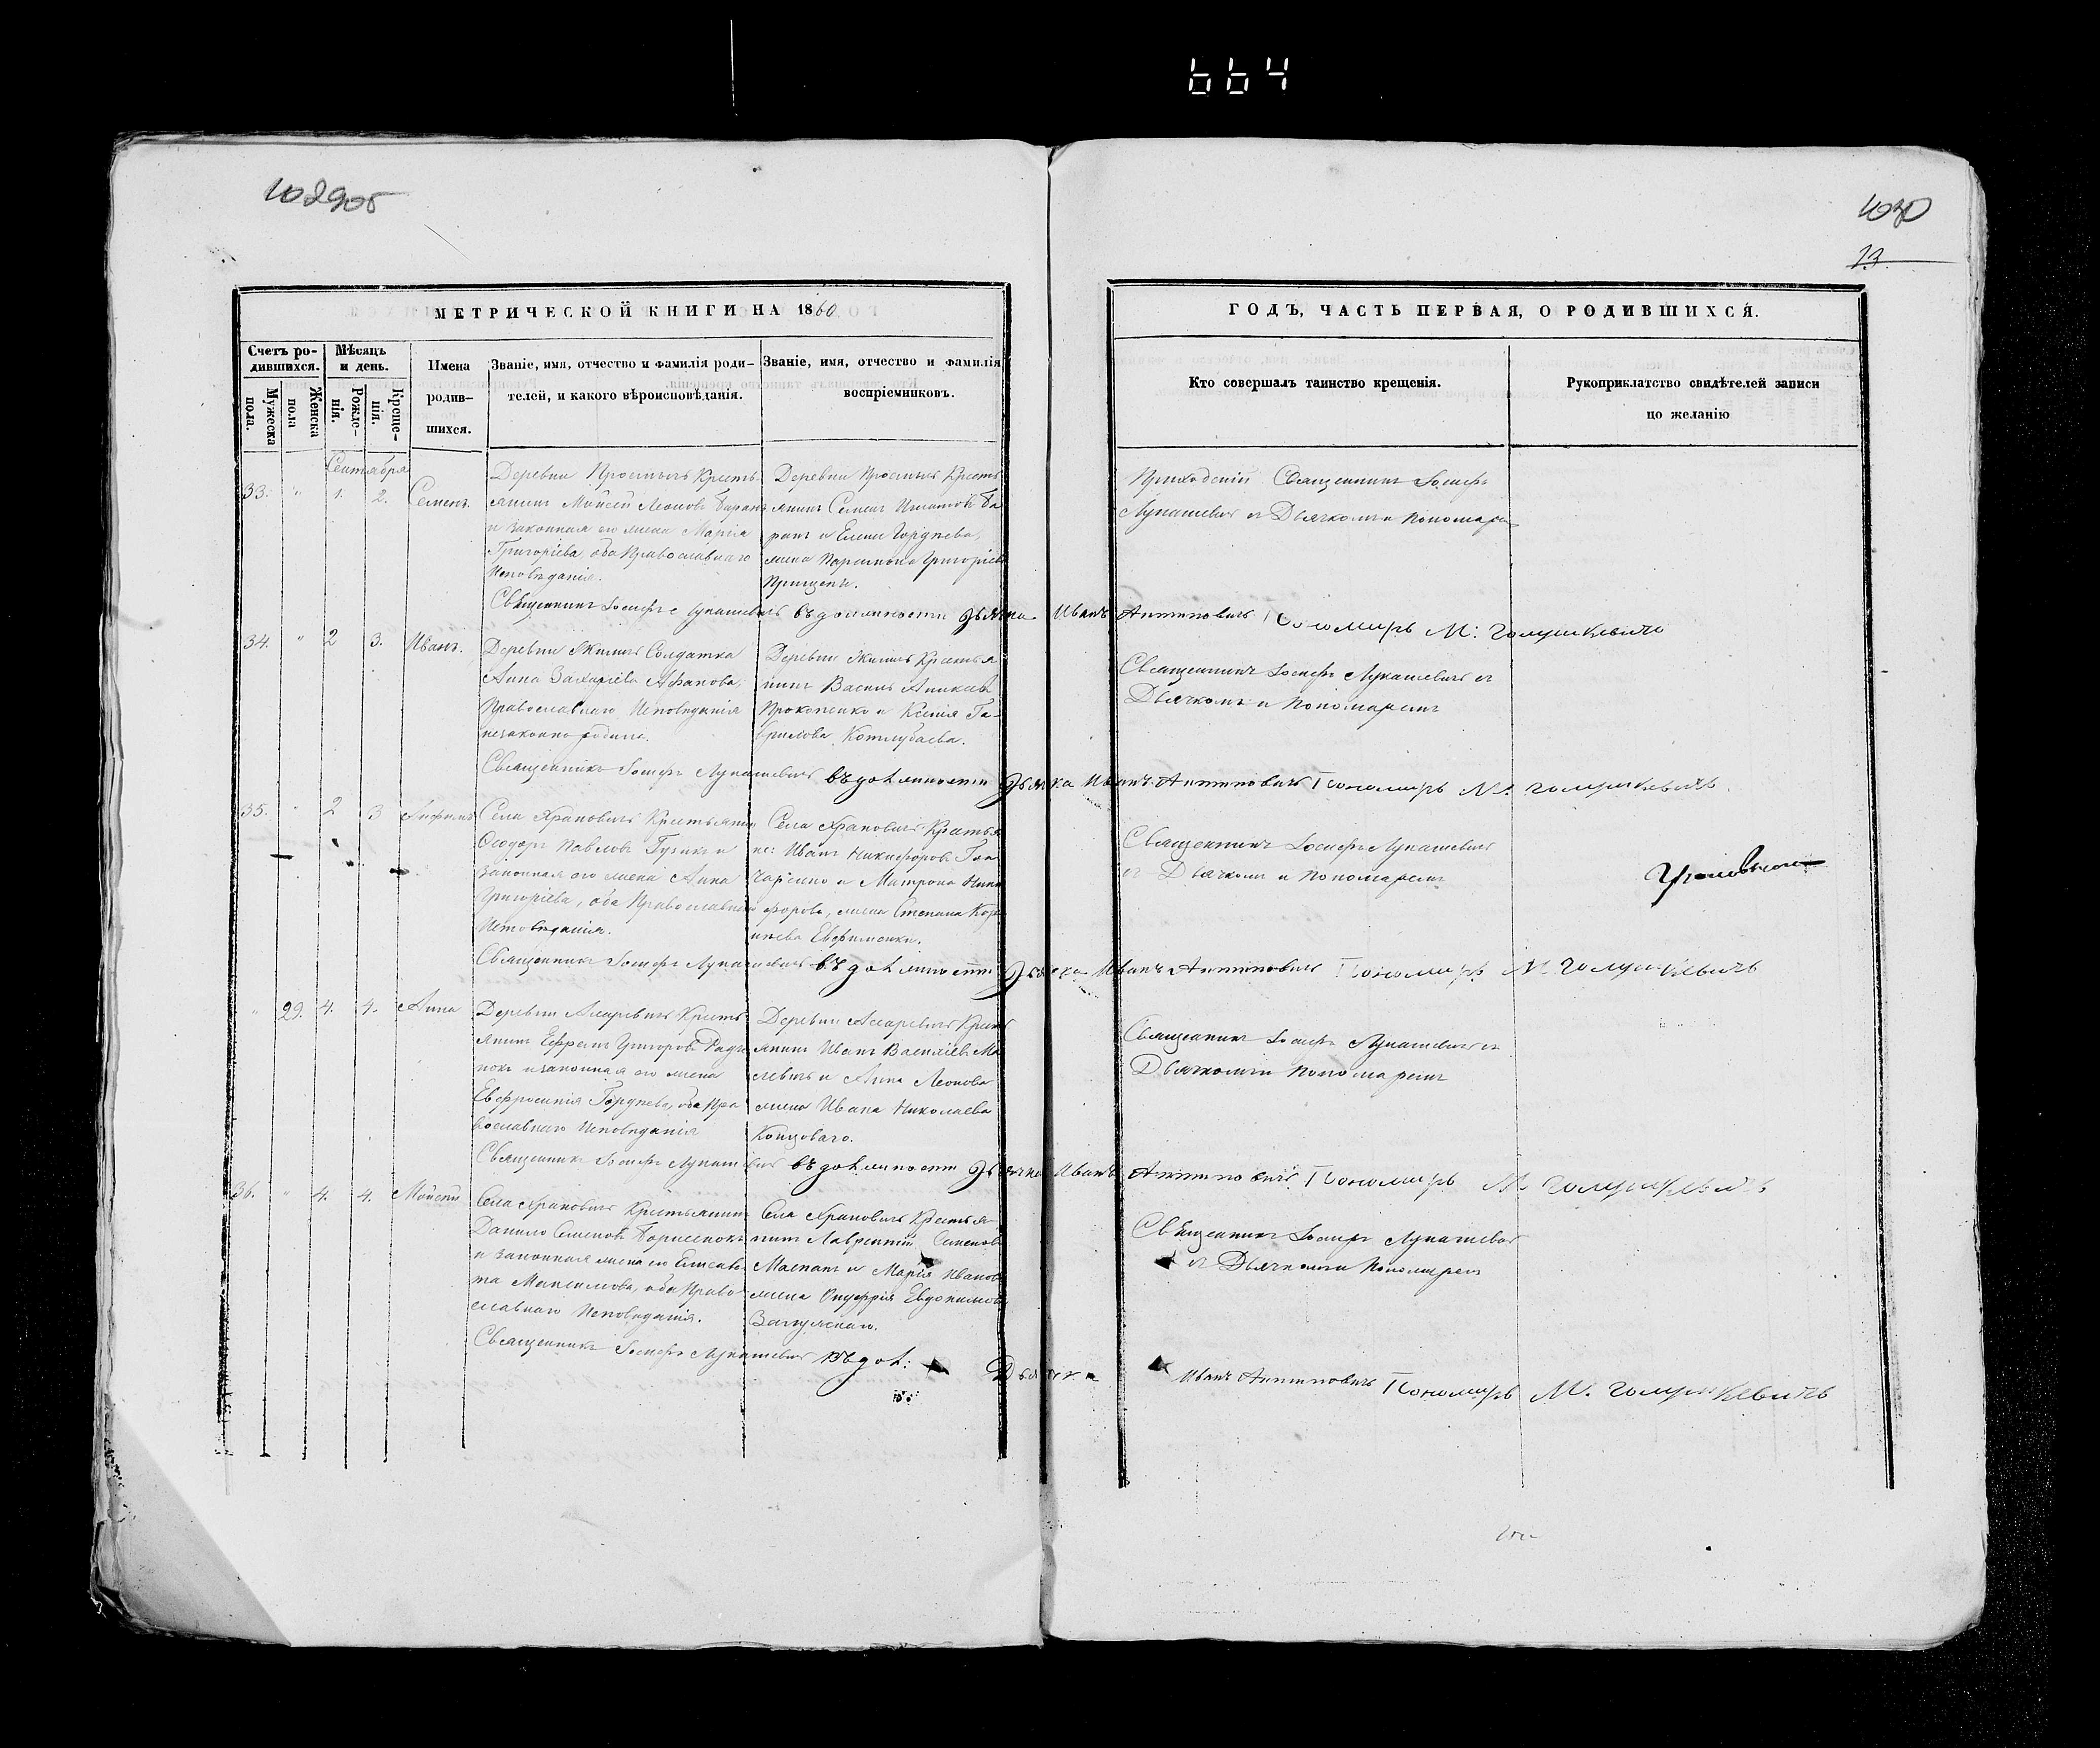 664
102905
1030
13.
МЕТРИЧЕСКОЙ КНИГИ НА 1860
ГОДЪ, ЧАСТЬ ПЕРВАЯ, О РОДИВШИХСЯ.
Счетъ ро-
дившихся.
Мѣсяцъ
и день.
Мужеска
пола.
Женска
пола
Рожде-
нія.
Креще-
нія.
Имена
родив-
шихся.
Званіе, имя, отчество и фамилія роди-
телей, и какого вѣроисповѣданія.
Званіе, имя, отчество и фамилія
воспріемниковъ.
Кто совершалъ таинство крещенія.
Рукоприклатство свидѣтелей записи
по желанію
Сентября
33. " 1. 2. Семенъ.
Деревни Кресть-
янинъ Мойсей Леоновъ Баранъ
и законная его жена Марія
Григоріева, оба Православнаго
Исповѣданія.
Деревни Кресть
янинъ Семенъ Игнатовъ Ба
ранъ и Елена Гордѣева,
жена Григоріева
Прищепъ.
Приходскій Священникъ Іосифъ
Лукашевичъ съ Дьячкомъ и Пономаремъ
Священникъ Іосифъ Лукашевичъ въ должности Дьячка Иванъ Антиповичъ Пономарь М: Голушкевичъ
34. " 2 3. Иванъ.
Деревни Солдатка
Анна Захаріева Афанова,
Православнаго Исповѣданія
незаконно
Деревни Крестья
нинъ Василь Аникіевъ
Прокопенко и Ксенія Га-
врилова Котлубаева.
Священникъ Іосифъ Лукашевичъ съ
Дьячкомъ и Пономаремъ
Священникъ Іосифъ Лукашевичъ въ должности Дьячка Иванъ Антиповичъ Пономарь М. Голушкевичъ
35. " 2 3
Села Храповичъ Крестьянинъ
Феодоръ Павловъ Гузикъ и
законная его жена Анна
Григоріева, оба Православнаго
Исповѣданія.
Села Храповичъ Крестья
не: Иванъ Никифоровъ
и Матрона Ники
форова, жена Степана
Евфименки.
Священникъ Іосифъ Лукашевичъ
съ Дьячкомъ и Пономаремъ
Священникъ Іосифъ Лукашевичъ въ должности Дьячка Иванъ Антиповичъ Пономарь М Голушкевичъ
" 29. 4. 4. Анна
Деревни Кресть
янинъ Ефремъ Григоровъ
и законная его жена
Евфросинія Гордѣева, оба Пра
вославнаго Исповѣданія
Деревни Кресть
янинъ Иванъ Василіевъ
и Анна Леонова
жена Ивана Николаева
Концоваго.
Священникъ Іосифъ Лукашевичъ съ
Дьячкомъ и Пономаремъ
Священникъ Іосифъ Лукашевичъ въ должности Дьячка Иванъ Антиповичъ Пономарь М. Голушкевичъ
36. " 4. 4. Мойсей
Села Храповичъ Крестьянинъ
Данило Семеновъ Борисенокъ
и законная жена его Елисаве
та Максимова, оба Право-
славнаго Исповѣданія.
Села Храповичъ Крестья
нинъ Лаврентій Семеновъ
и Марія Иванова
жена Онуфрія Евдокимова
Священникъ Іосифъ Лукашевичъ
съ Дьячкомъ и Пономаремъ
Священникъ Іосифъ Лукашевичъ въ дол: Дьячка Иванъ Антиповичъ Пономарь М. Голушкевичъ